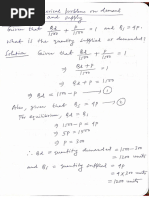 Numerical problem on demand
and supply
Given that Qd/1500 + P/1500 = 1 and Qs = 4P
What is the quantity supplied & demanded?
Solution Given that Qd/1500 + P/1500 = 1
⇒ Qd + P / 1500 = 1
⇒ Qd + P = 1500
⇒ Qd = 1500 - P
Also, given that Qs = 4P
In equilibrium, Qd = Qs
⇒ 1500 - P = 4P
⇒ 5P = 1500
⇒ P = 300
∴ Qd = quantity demanded = 1500 - 300
= 1200 units
and Qs = quantity supplied = 4P
= 4 × 300 units
= 1200 units